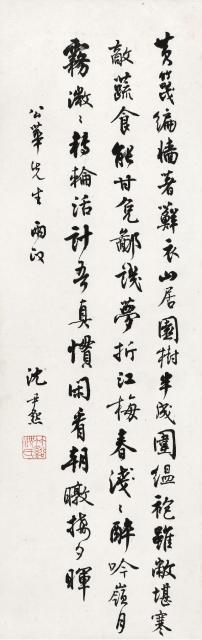 黃篾編墻著蘚衣山居園樹半成圍縕袍雖敝堪寒
敵蔬食能甘免鄰譏夢折江梅春淺〻醉吟嶺月
霧微〻轉輪活計吾真慣閑看朝暾接夕暉
公華先生兩政
沈尹默